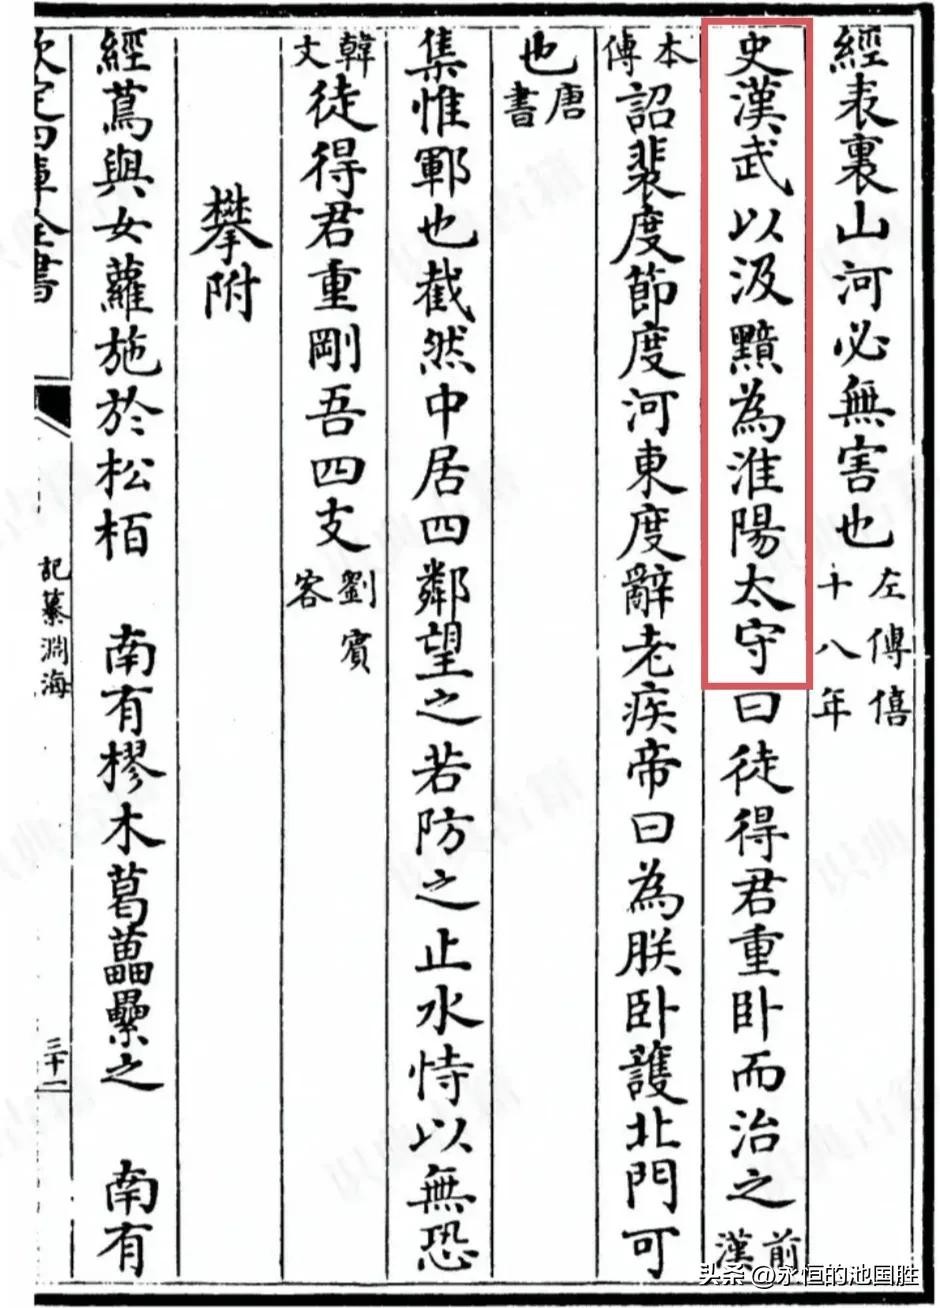 經表裏山河必無害也左傳僖十八年
史漢武以汲黯為淮陽太守曰徒得君重卧而治之前漢
本傳詔裴度節度河東度辭老疾帝曰為朕卧護北門可
也唐書
集惟鄆也截然中居四鄰望之若防之止水恃以無恐
韓文徒得君重剛吾四支劉賓客
攀附
經蔦與女蘿施於松栢 南有樛木葛藟纍之 南有
欽定四庫全書
記纂淵海
三十二
头条 @永恒的池国胜